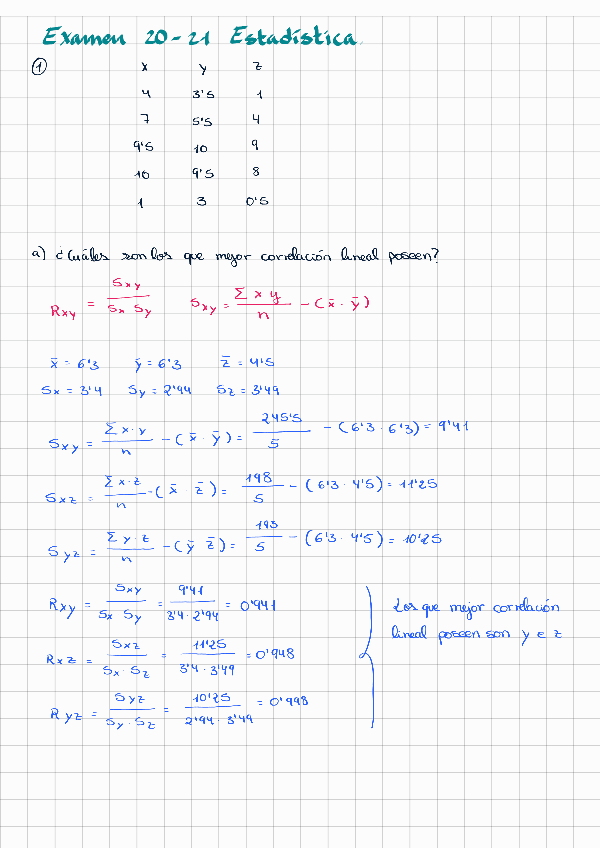 Examen 20-21 Estadística.
① x y z
4 3'5 1
7 5'5 4
9'5 10 9
10 9'5 8
1 3 0'5
a) ¿Cuáles son los que mejor correlación lineal poseen?
Rxy = Sxy / Sx Sy   Sxy = Σ x y / n - (x̄ · ȳ)
x̄ = 6'3   ȳ = 6'3   z̄ = 4'5
Sx = 3'4   Sy = 2'94   Sz = 3'49
Sxy = Σ x · y / n - (x̄ · ȳ) = 245'5 / 5 - (6'3 · 6'3) = 9'41
Sxz = Σ x · z / n - (x̄ · z̄) = 198 / 5 - (6'3 · 4'5) = 11'25
Syz = Σ y · z / n - (ȳ z̄) = 193 / 5 - (6'3 · 4'5) = 10'25
Rxy = Sxy / Sx Sy = 9'41 / 3'4 · 2'94 = 0'941
Rxz = Sxz / Sx · Sz = 11'25 / 3'4 · 3'49 = 0'948
Ryz = Syz / Sy · Sz = 10'25 / 2'94 · 3'49 = 0'998
Los que mejor correlación
lineal poseen son y e z